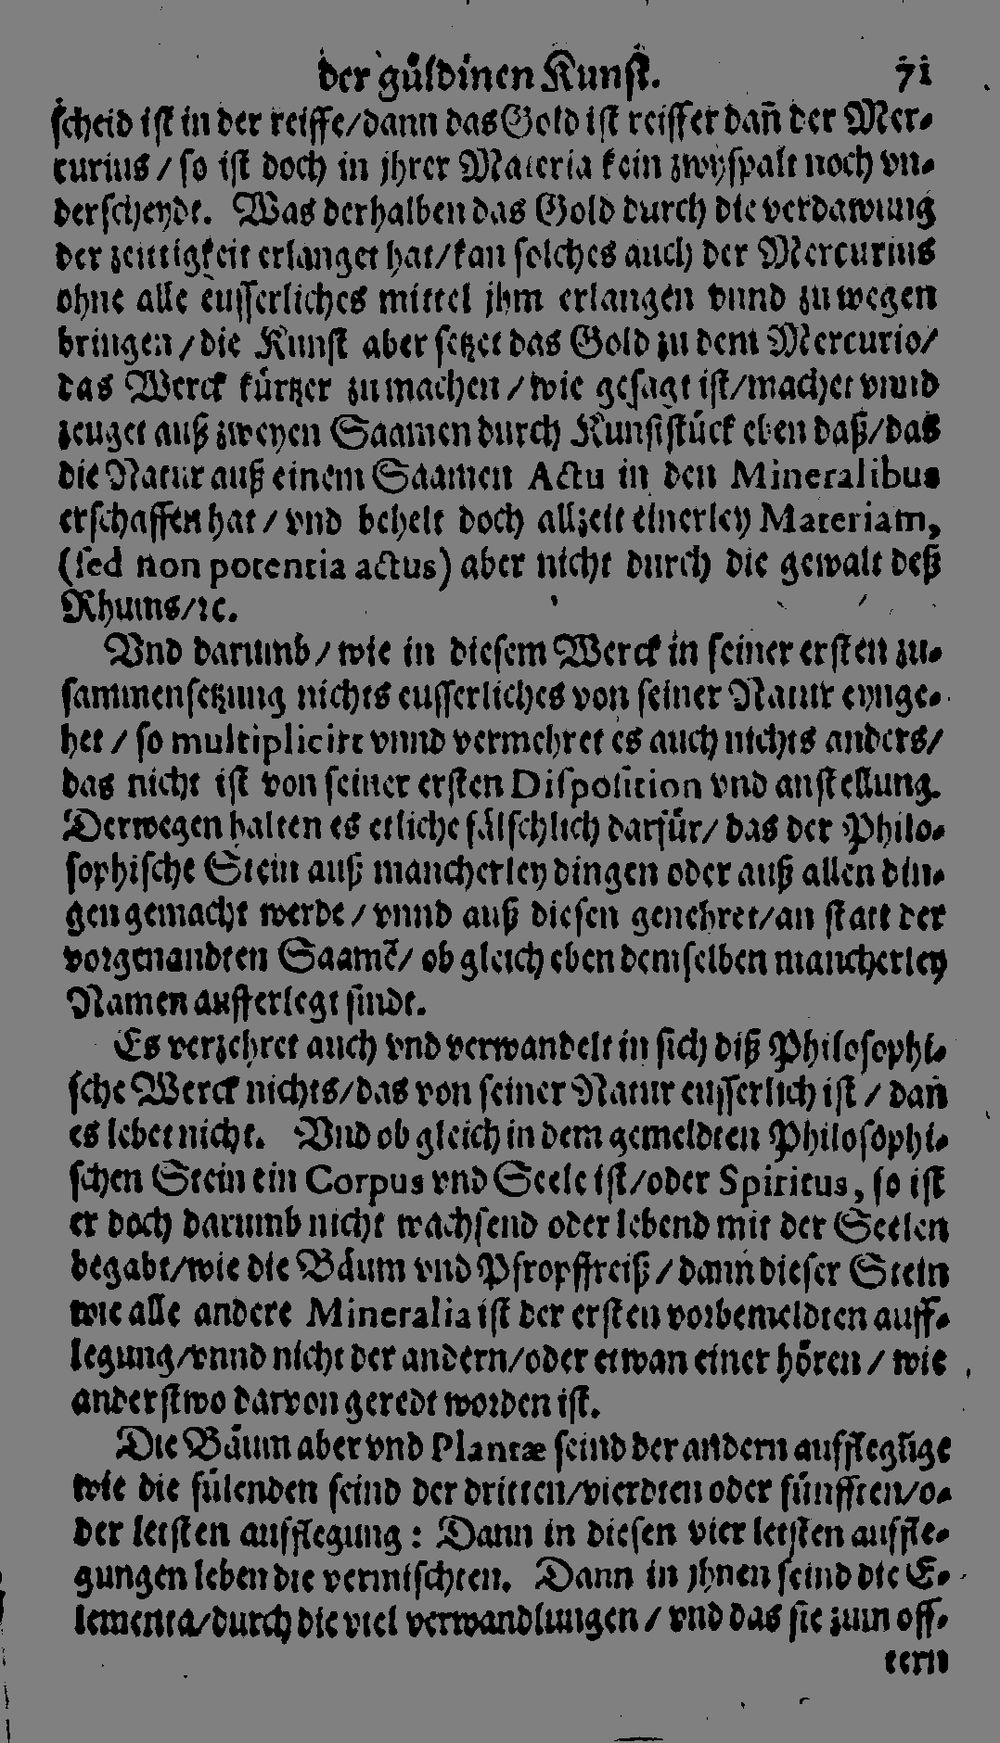 der güldinen Kunst. 71
scheid ist in der reiffe/dann das Gold ist reiffer dañ der Mer-
curius / so ist doch in jhrer Materia kein zwyspalt noch vn-
derscheydt. Was derhalben das Gold durch die verdawung
der zeittigkeit erlanget hat/kan solches auch der Mercurius
ohne alle eusserliches mittel jhm erlangen vnnd zu wegen
bringen / die Kunst aber setzet das Gold zu dem Mercurio/
das Werck kürtzer zu machen / wie gesagt ist/machet vnnd
zeuget auß zweyen Saamen durch Kunststück eben daß/das
die Natur auß einem Saamen Actu in den Mineralibus
erschaffen hat / vnd behelt doch allzeit einerley Materiam,
(sed non potentia actus) aber nicht durch die gewalt deß
Rhums/ꝛc.
Vnd darumb / wie in diesem Werck in seiner ersten zu-
sammensetzung nichts eusserliches von seiner Natur eynge-
het / so multiplicirt vnnd vermehret es auch nichts anders/
das nicht ist von seiner ersten Disposition vnd anstellung.
Derwegen halten es etliche fälschlich darfür/ das der Philo-
sophische Stein auß mancherley dingen oder auß allen din-
gen gemacht werde / vnnd auß diesen genehret/an statt der
vorgenandten Saamẽ/ ob gleich eben demselben mancherley
Namen aufferlegt sindt.
Es verzehret auch vnd verwandelt in sich diß Philosophi-
sche Werck nichts/das von seiner Natur eusserlich ist / dañ
es lebet nicht. Vnd ob gleich in dem gemeldten Philosophi-
schen Stein ein Corpus vnd Seele ist/oder Spiritus, so ist
er doch darumb nicht wachsend oder lebend mit der Seelen
begabt/wie die Bäum vnd Pfropffreiß / dann dieser Stein
wie alle andere Mineralia ist der ersten vorbemeldten auff-
legung/vnnd nicht der andern/oder etwan einer hören / wie
anderstwo darvon geredt worden ist.
Die Bäum aber vnd Plantæ seind der andern aufflegũge
wie die fülenden seind der dritten/vierdten oder fünfften/o-
der letsten aufflegung : Dann in diesen vier letsten auffle-
gungen leben die vermischten. Dann in jhnen seind die E-
lementa/durch die viel verwandlungen / vnd das sie zum öff-
tern